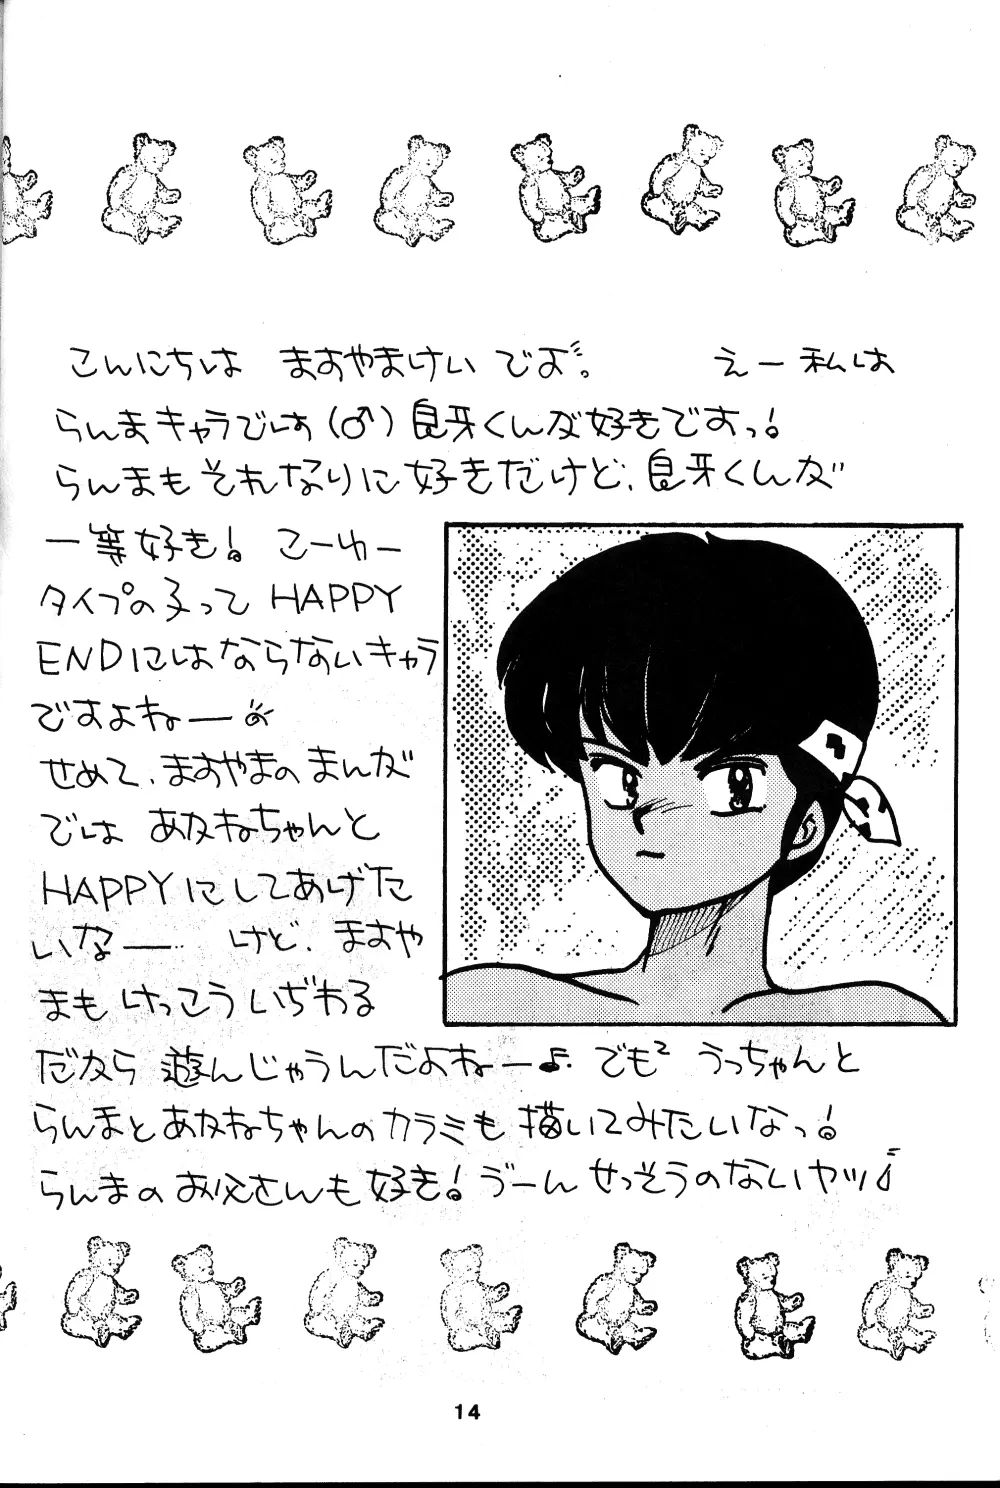 こんにちは ますやまけい でよ。 えー私は
らんまキャラでは(♂)良牙くんが好きですっ!
らんまもそれなりに好きだけど、良牙くんが
一等好き! こーゆー
タイプの子って HAPPY
ENDにはならないキャラ
ですよねー
せめて、ますやまのまんが
では あかねちゃんと
HAPPYにしてあげた
いなー けど、ますや
まも けっこういぢわる
だから 遊んじゃうんだよねー♪ でも² うっちゃんと
らんまとあかねちゃんのカラミも描いてみたいなっ!
らんまのお父さんも好き! うーん せっそうのないヤツ♪
14